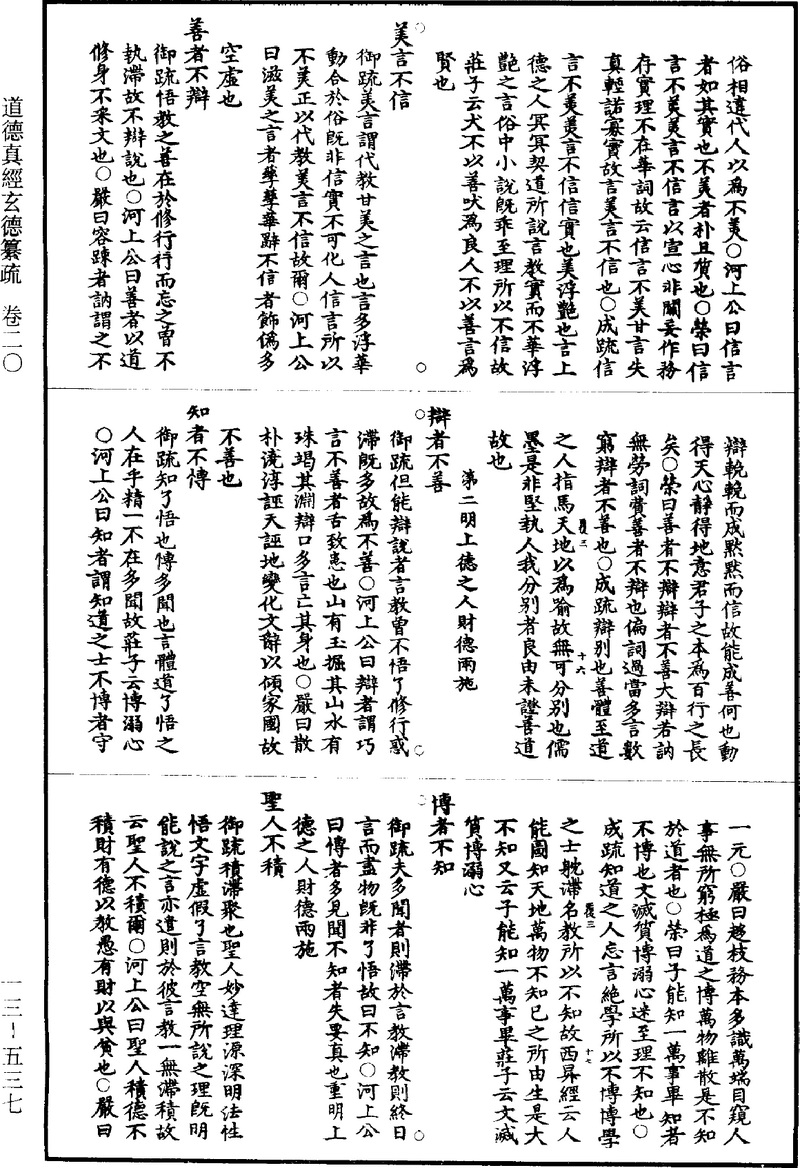 道德真經玄德纂疏 卷二〇
一三—五三七
俗相違代人以為不美○河上公曰信言
者如其實也不美者朴且質也○榮曰信
言不美美言不信言以宣心非關妄作務
存實理不在華詞故云信言不美甘言失
真輕諾寡實故言美言不信也○成疏信
言不美美言不信信實也美浮艷也言上
德之人冥冥契道所說言教實而不華浮
艷之言俗中小說既乖至理所以不信故
莊子云犬不以善吠為良人不以善言為
賢也
美言不信
御疏美言謂代教甘美之言也言多浮華
動合於俗既非信實不可化人信言所以
不美正以代教美言不信故爾○河上公
曰滋美之言者孳孳華辭不信者飾偽多
空虛也
善者不辯
御疏悟教之善在於修行行而忘之曾不
執滯故不辯說也○河上公曰善者以道
修身不釆文也○嚴曰容踈者訥謂之不
辯輓輓而成默默而信故能成善何也動
得天心靜得地意君子之本為百行之長
矣○榮曰善者不辯辯者不善大辯若訥
無勞詞費善者不辯也偏詞過當多言數
窮辯者不善也○成疏辯別也善體至道
之人指馬天地以為喻故無可分別也儒
覆三
十六
墨是非堅執人我分別者良由未證善道
故也
第二明上德之人財德兩施
辯者不善
御疏但能辯說者言教曾不悟了修行惑
滯既多故為不善○河上公曰辯者謂巧
言不善者舌致患也山有玉掘其山水有
珠竭其淵辯口多言亡其身也○嚴曰散
朴澆淳誣天誣地變化文辭以傾家國故
不善也
知者不博
御疏知了悟也博多聞也言體道了悟之
人在乎精一不在多聞故莊子云博溺心
○河上公曰知者謂知道之士不博者守
一元○嚴曰趍枝務本多識萬端目窺人
事無所窮極為道之博萬物離散是不知
於道者也○榮曰子能知一萬事畢知者
不博也文滅質博溺心迷至理不知也○
成疏知道之人忘言絕學所以不博博學
之士躭滯名教所以不知故西昇經云人
覆三
十七
能圖知天地萬物不知已之所由生是大
不知又云子能知一萬事畢莊子云文滅
質博溺心
博者不知
御疏夫多聞者則滯於言教滯教則終日
言而盡物既非了悟故曰不知○河上公
曰博者多見聞不知者失要真也重明上
德之人財德兩施
聖人不積
御疏積滯聚也聖人妙達理源深明法性
悟文字虛假了言教空無所說之理既明
能說之言亦遣則於彼言教一無滯積故
云聖人不積爾○河上公曰聖人積德不
積財有德以教愚有財以與貧也○嚴曰